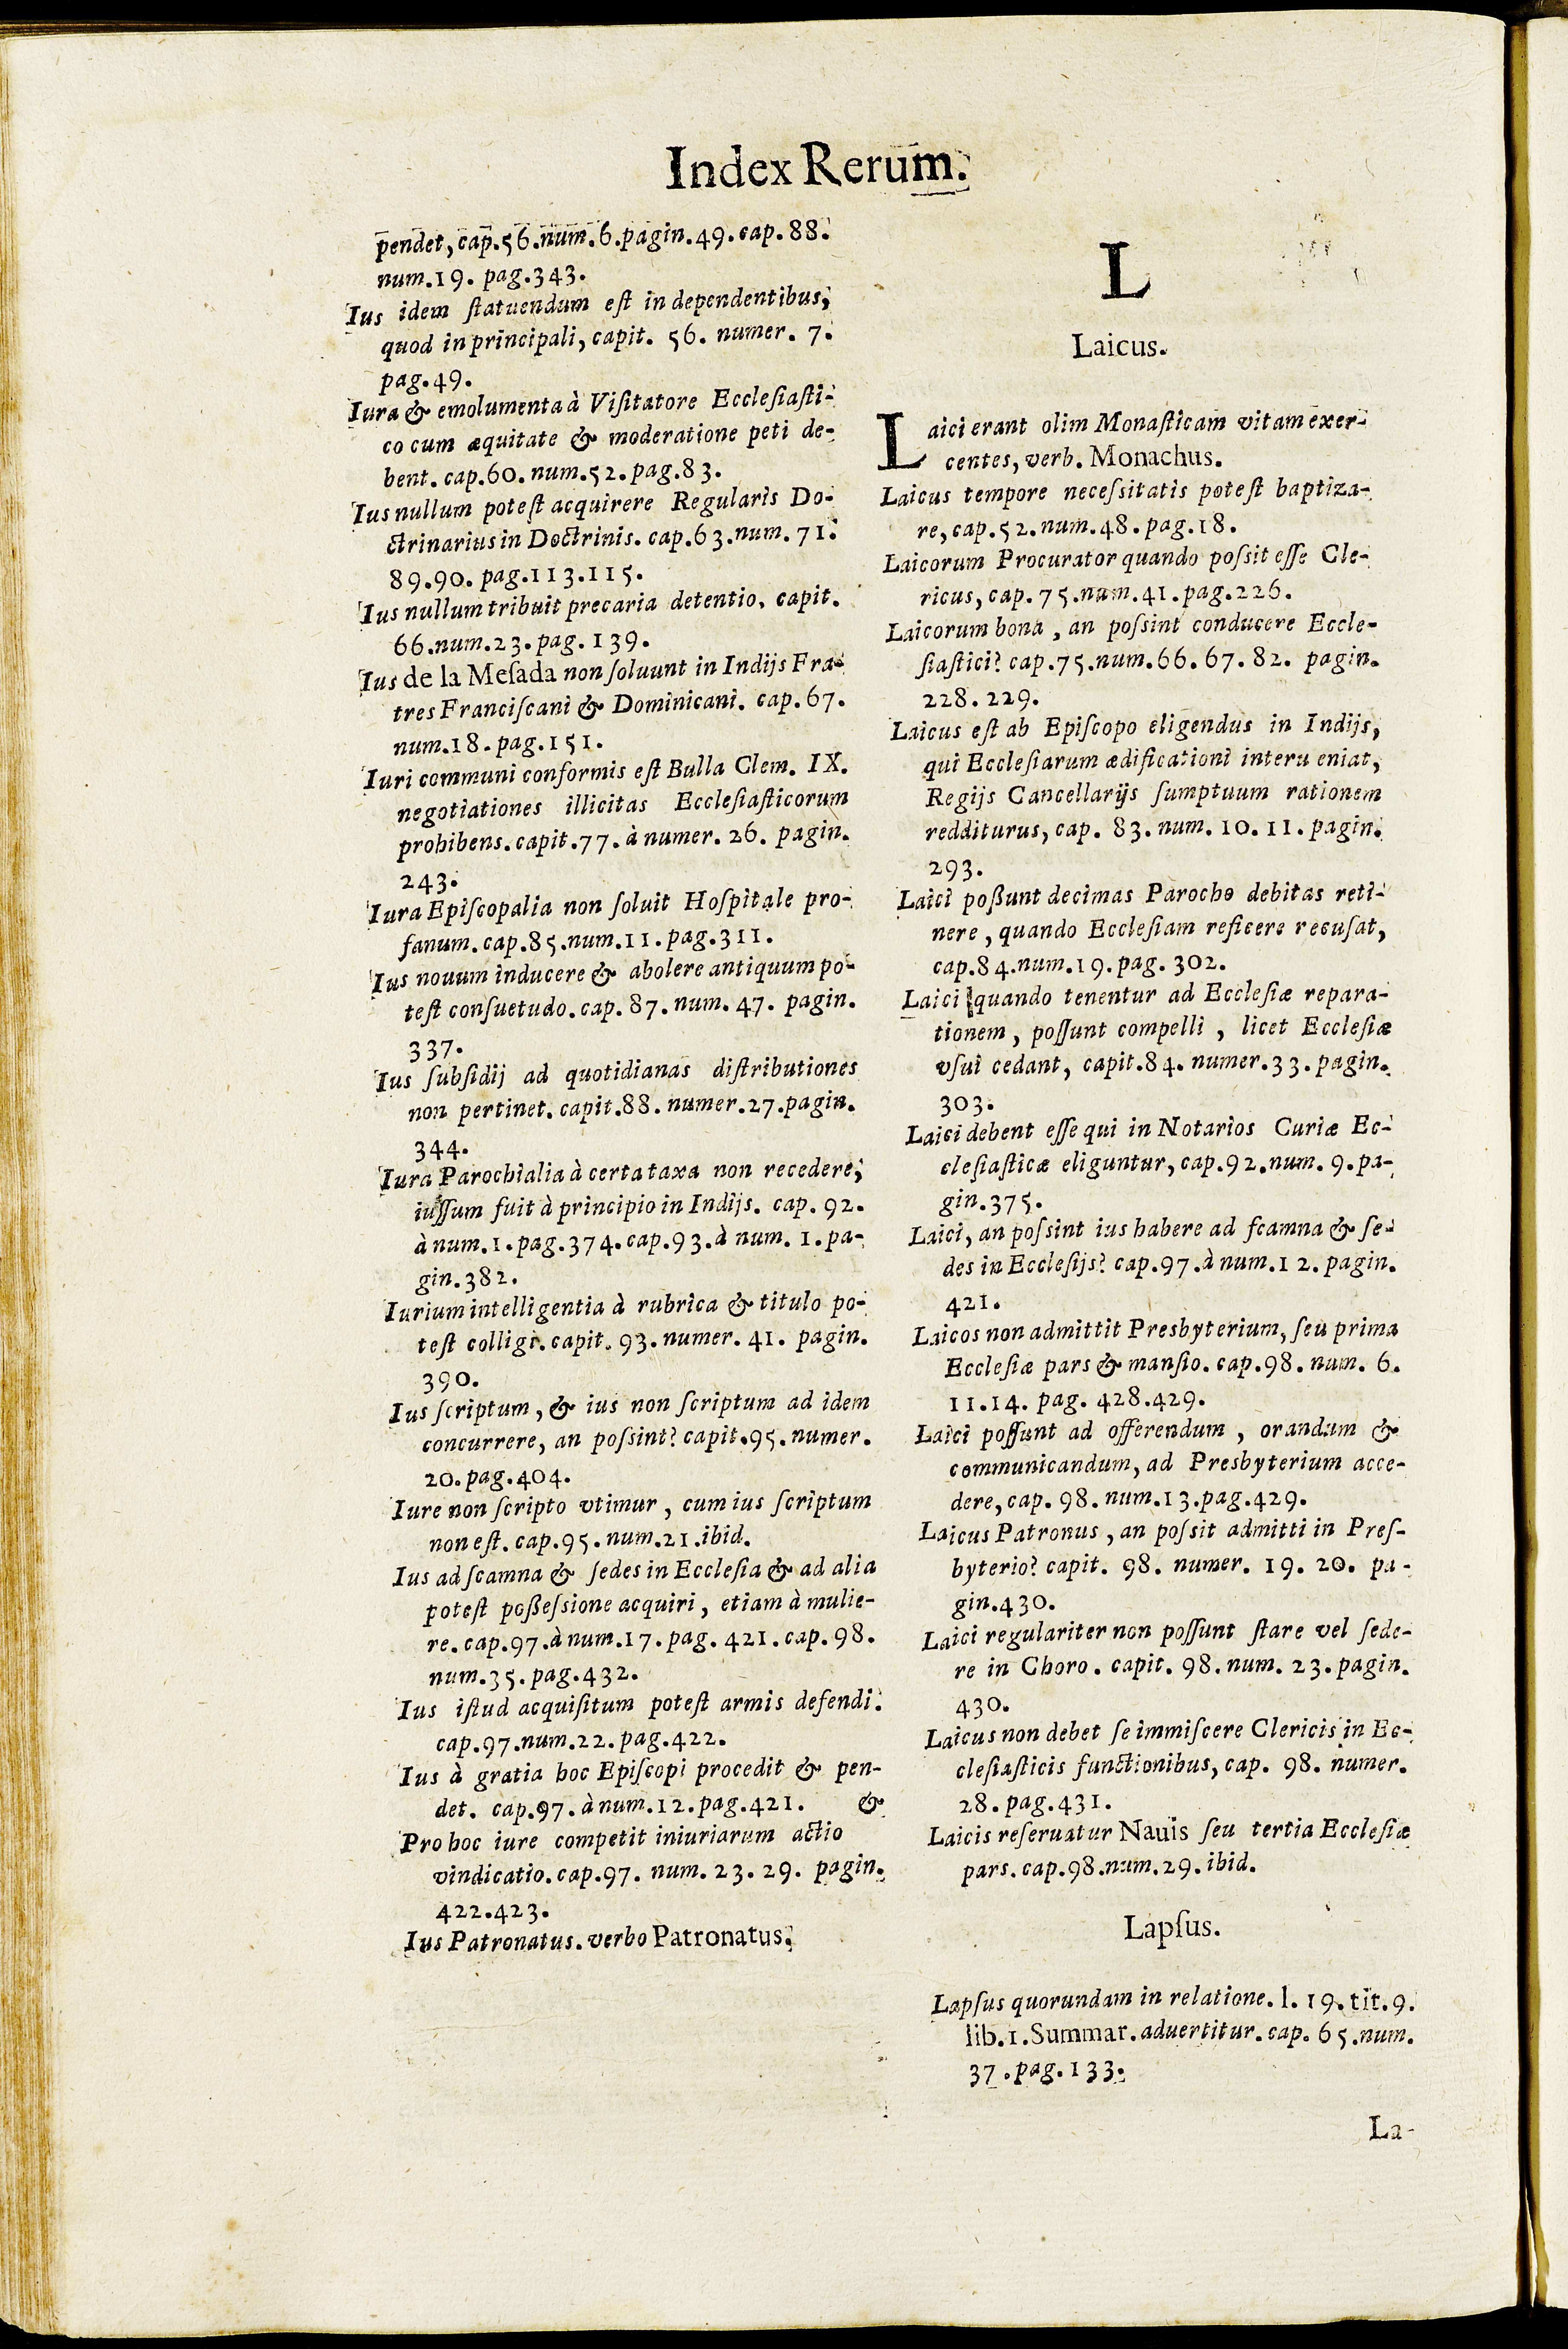 Index Rerum.
pendet, cap.56.num.6.pagin.49.cap.88.
num.19. pag.343.
Ius idem ſtatuendum eſt in dependentibus,
quod in principali, capit. 56. numer. 7.
pag.49.
Iura & emolumenta à Viſitatore Eccleſiaſti-
co cum æquitate & moderatione peti de-
bent. cap.60. num.52. pag.83.
Ius nullum poteſt acquirere Regularis Do-
ctrinarius in Doctrinis. cap.63.num. 71.
89.90. pag.113.115.
Ius nullum tribuit precaria detentio. capit.
66.num.23.pag.139.
Ius de la Meſada non ſoluunt in Indijs Fra-
tres Franciſcani & Dominicani. cap.67.
num.18.pag.151.
Iuri communi conformis eſt Bulla Clem. IX.
negotiationes illicitas Eccleſiaſticorum
prohibens. capit.77. à numer. 26. pagin.
243.
Iura Epiſcopalia non ſoluit Hoſpitale pro-
fanum. cap.85.num.11.pag.311.
Ius nouum inducere & abolere antiquum po-
teſt conſuetudo. cap. 87. num. 47. pagin.
337.
Ius ſubſidij ad quotidianas diſtributiones
non pertinet. capit.88. numer.27.pagin.
344.
Iura Parochialia à certa taxa non recedere,
iuſſum fuit à principio in Indijs. cap. 92.
à num.1.pag.374.cap.93.à num. 1.pa-
gin.382.
Iurium intelligentia à rubrica & titulo po-
teſt colligi. capit. 93. numer. 41. pagin.
390.
Ius ſcriptum, & ius non ſcriptum ad idem
concurrere, an poſsint? capit.95. numer.
20.pag.404.
Iure non ſcripto vtimur, cum ius ſcriptum
non eſt. cap.95.num.21.ibid.
Ius ad ſcamna & ſedes in Eccleſia & ad alia
poteſt poßeſsione acquiri, etiam à mulie-
re. cap.97.à num.17.pag. 421.cap.98.
num.35.pag.432.
Ius iſtud acquiſitum poteſt armis defendi.
cap.97.num.22.pag.422.
Ius à gratia hoc Epiſcopi procedit & pen-
det. cap.97. à num.12.pag.421. &
Pro hoc iure competit iniuriarum actio
vindicatio.cap.97. num. 23. 29. pagin.
422.423.
Ius Patronatus. verbo Patronatus.
L
Laicus.
Laici erant olim Monaſticam vitam exer-
centes, verb. Monachus.
Laicus tempore neceſsitatis poteſt baptiza-
re, cap.52.num.48.pag.18.
Laicorum Procurator quando poſsit eſſe Cle-
ricus, cap.75.num.41.pag.226.
Laicorum bona, an poſsint conducere Eccle-
ſiaſtici? cap.75.num.66.67.82. pagin.
228.229.
Laicus eſt ab Epiſcopo eligendus in Indijs,
qui Eccleſiarum ædificationi interu eniat,
Regijs Cancellarijs ſumptuum rationem
redditurus, cap. 83. num. 10. 11. pagin.
293.
Laici poßunt decimas Parocho debitas reti-
nere, quando Eccleſiam reficere recuſat,
cap.84.num.19.pag. 302.
Laici quando tenentur ad Eccleſiæ repara-
tionem, poſſunt compelli, licet Eccleſiæ
vſui cedant, capit.84. numer.33. pagin.
303.
Laici debent eſſe qui in Notarios Curiæ Ec-
cleſiaſticæ eliguntur, cap.92.num. 9.pa-
gin.375.
Laici, an poſsint ius habere ad ſcamna & ſe-
des in Eccleſijs? cap.97.à num.12. pagin.
421.
Laicos non admittit Presbyterium, ſeu prima
Eccleſiæ pars & manſio. cap.98. num. 6.
11.14. pag. 428.429.
Laici poſſunt ad offerendum, orandum &
communicandum, ad Presbyterium acce-
dere, cap. 98. num.13.pag.429.
Laicus Patronus, an poſsit admitti in Preſ-
byterio? capit. 98. numer. 19. 20. pa-
gin.430.
Laici regulariter non poſſunt ſtare vel ſede-
re in Choro. capit. 98. num. 23. pagin.
430.
Laicus non debet ſe immiſcere Clericis in Ec-
cleſiaſticis functionibus, cap. 98. numer.
28. pag.431.
Laicis reſeruatur Nauis ſeu tertia Eccleſiæ
pars. cap.98.num.29. ibid.
Lapſus.
Lapſus quorundam in relatione. l. 19. tit.9.
lib.1.Summar. aduertitur. cap. 65.num.
37.pag.133.
La-